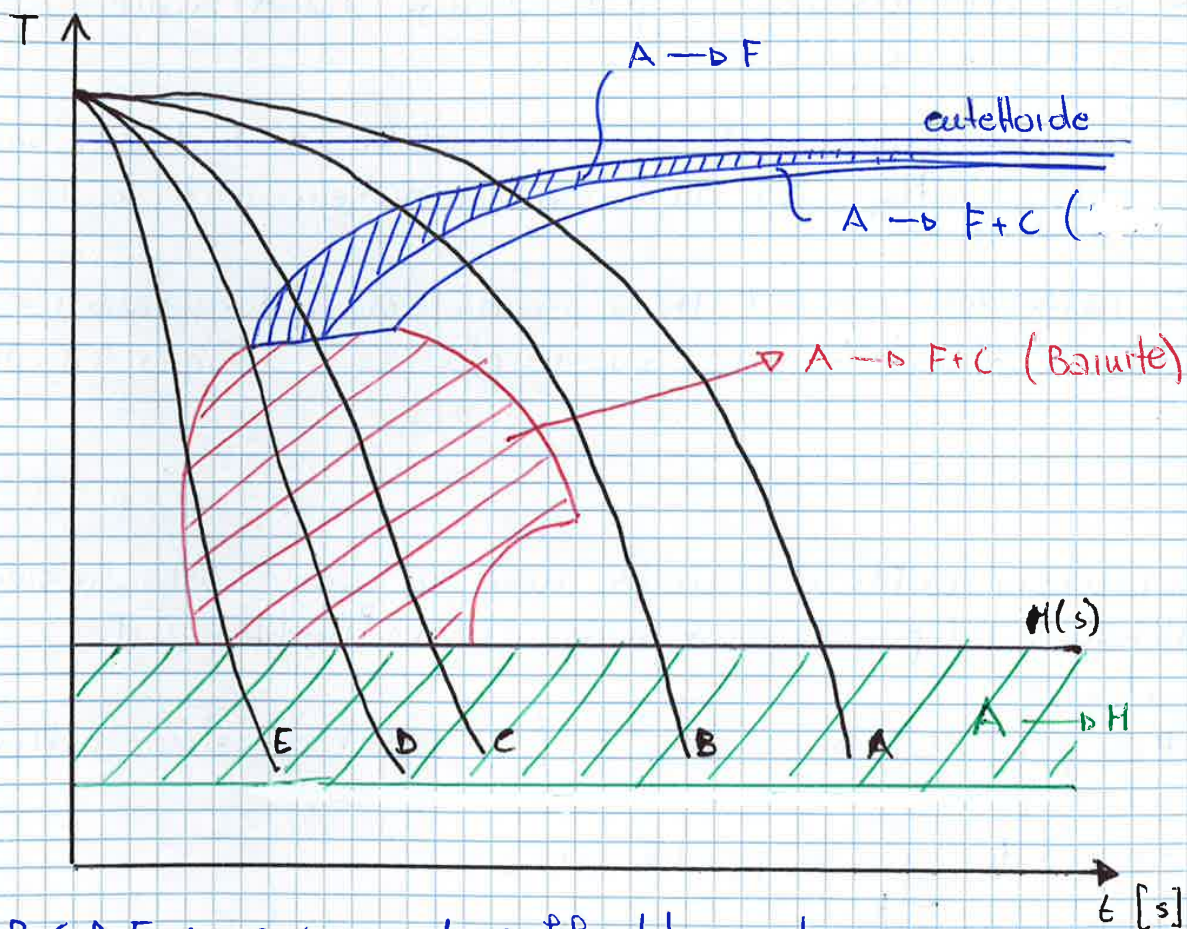 T
A → F
eutettoide
A → F+C (
A → F+C (Bainite)
M(s)
A → M
E D C B A
t [s]